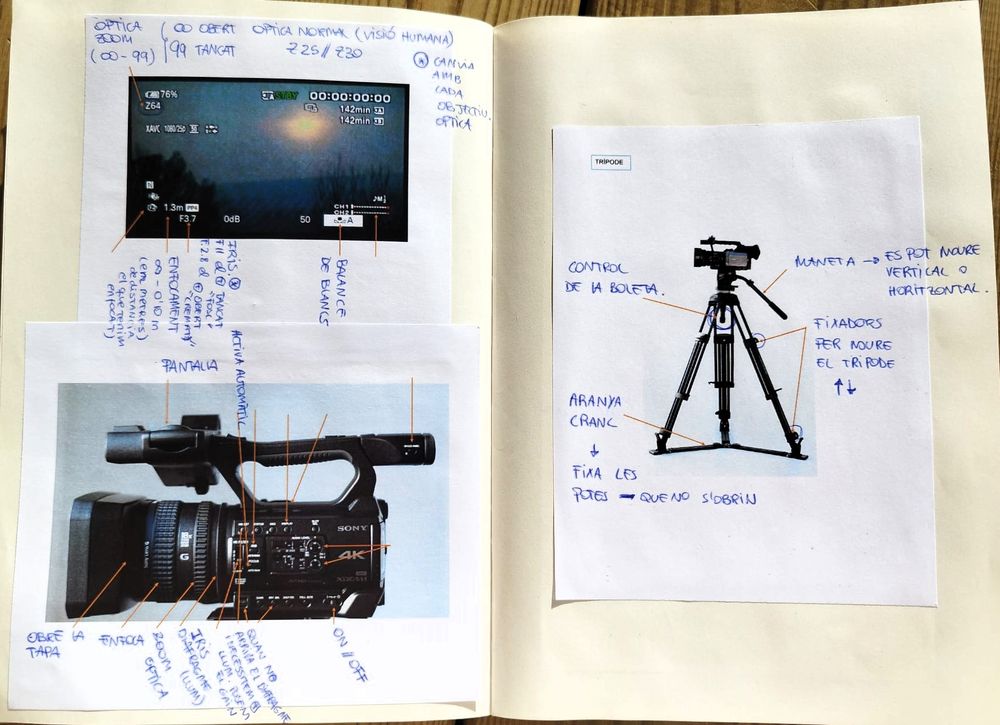 OPTICA
ZOOM
(00-99)
00 OBERT
99 TANCAT
OPTICA NORMAL (VISIÓ HUMANA)
Z25 // Z30
* CANVIA
AMB
CADA
OBJECTIU.
OPTICA
76%
STBY
00:00:00:00
Z64
142min
142min
XAVC
N
1.3m PP4
F3.7
0dB
50
A
CH1
CH2
IRIS. *
F11 al TANCAT
F.2.8 al OBERT
ENFOCAMENT
∞ - 0'10 m
(EM METRES)
de distància
el que tenim
enfocat)
BALANCE
DE BLANCS
PANTALLA
ACTIVA AUTOMÀTIC
SONY
4K
G
OBRE LA
TAPA
ENFOCA
ZOOM
OPTICA
IRIS
DIAFRAGME
(LLUM)
QUAN NO
ARRIBA EL DIAFRAGME
I NECESSITEM
LLUM, PUGEM
EL GAIN
ON // OFF
TRÍPODE
CONTROL
DE LA BOLETA.
MANETA → ES POT MOURE
VERTICAL O
HORITZONTAL.
FIXADORS
PER MOURE
EL TRÍPODE
↑↓
ARANYA
CRANC
↓
FIXA LES
POTES → QUE NO S'OBRIN